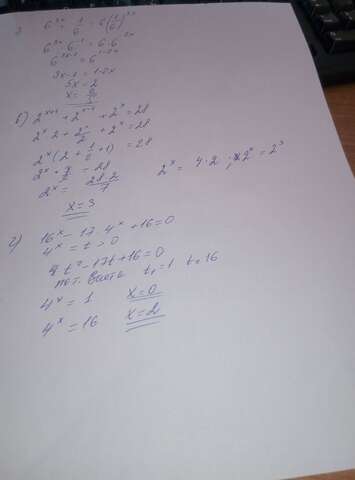 6^{3x} · 1/6 = 6(1/6)^{2x}
6^{3x} · 6^{-1} = 6 · 6^{-2x}
6^{3x-1} = 6^{1-2x}
3x-1 = 1-2x
5x = 2
x = 2/5
б) 2^{x+1} + 2^{x-1} + 2^x = 28
2^x · 2 + 2^x/2 + 2^x = 28
2^x (2 + 1/2 + 1) = 28
2^x · 7/2 = 28
2^x = 28·2/7
2^x = 4·2 ; 2^x = 2^3
x = 3
г) 16^x - 17 · 4^x + 16 = 0
4^x = t > 0
t² - 17t + 16 = 0
t₁ = 1 t = 16
4^x = 1 x = 0
4^x = 16 x = 2